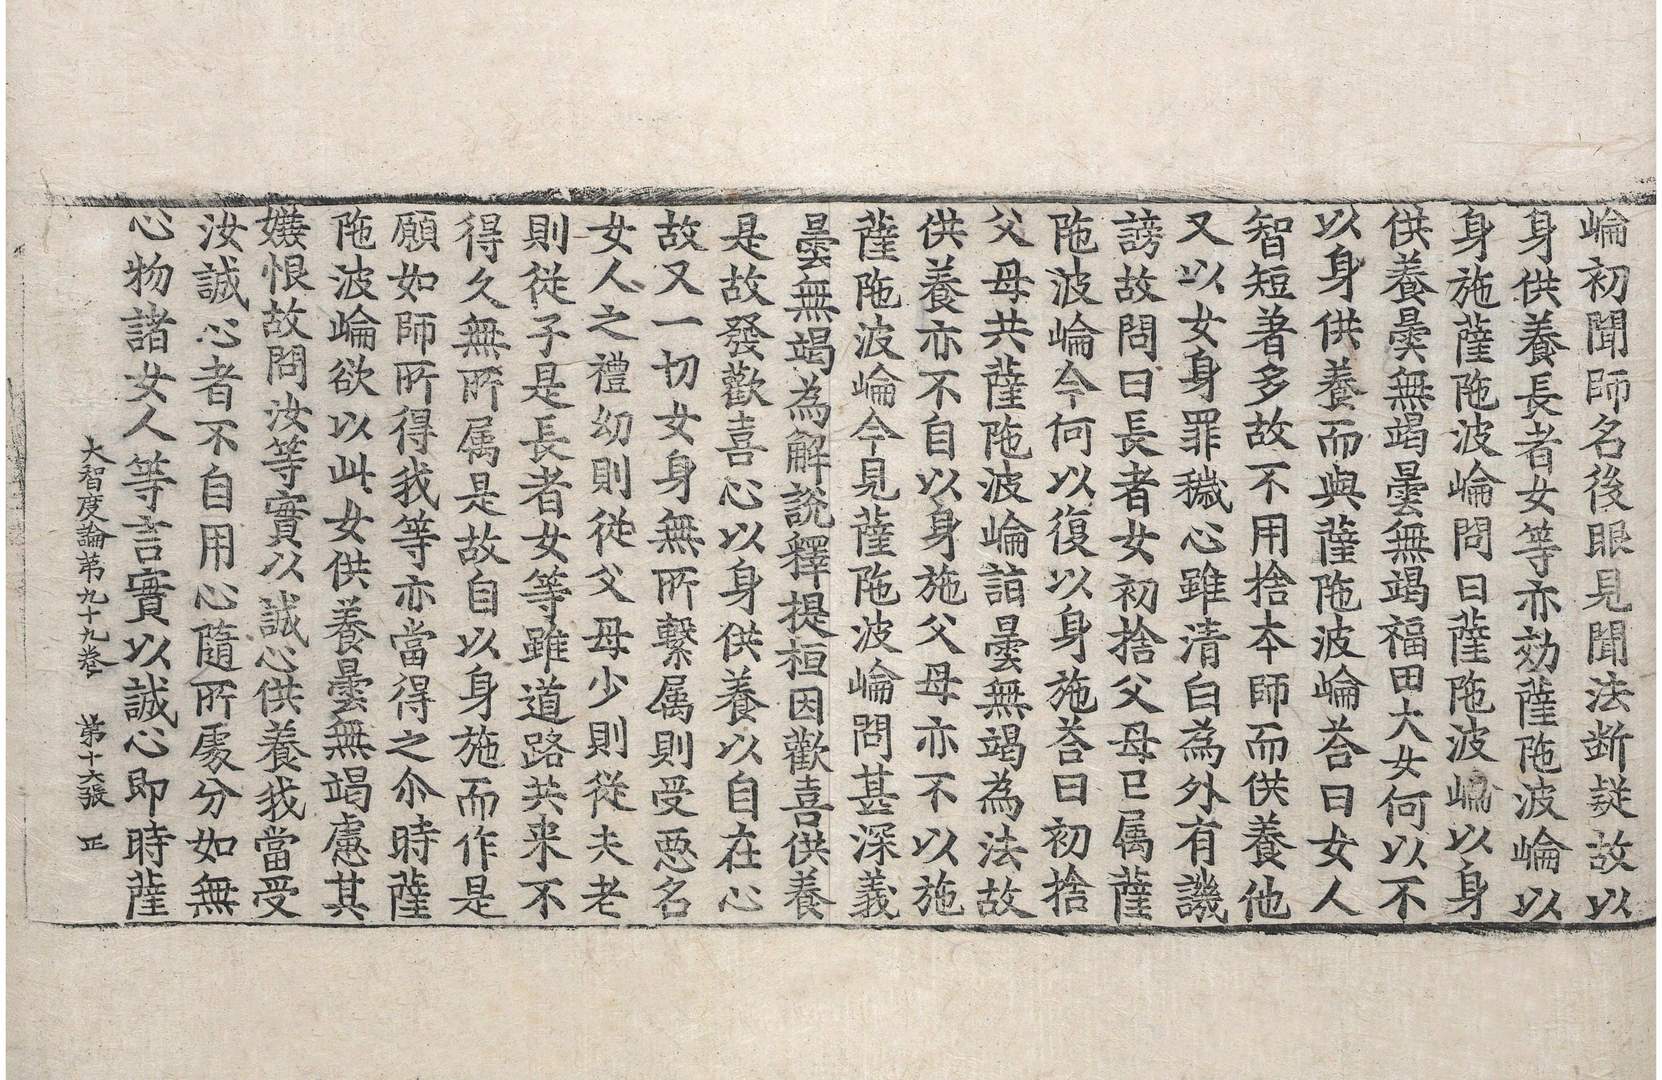 崘初聞師名後眼見聞法斷疑故以
身供養長者女等亦効薩陁波崘以
身施薩陁波崘問曰薩陁波崘以身
供養曇無竭曇無竭福田大女何以不
以身供養而與薩陁波崘荅曰女人
智短著多故不用捨本師而供養他
又以女身罪穢心雖清白為外有譏
謗故問曰長者女初捨父母已属薩
陁波崘今何以復以身施荅曰初捨
父母共薩陁波崘詣曇無竭為法故
供養亦不自以身施父母亦不以施
薩陁波崘今見薩陁波崘問甚深義
曇無竭為解說釋提桓因歡喜供養
是故發歡喜心以身供養以自在心
故又一切女身無所繫属則受惡名
女人之禮幼則從父母少則從夫老
則從子是長者女等雖道路共来不
得久無所属是故自以身施而作是
願如師所得我等亦當得之尒時薩
陁波崘欲以此女供養曇無竭慮其
嫌恨故問汝等實以誠心供養我當受
汝誠心者不自用心隨所處分如無
心物諸女人等言實以誠心即時薩
大智度論第九十九卷 第十六張 正